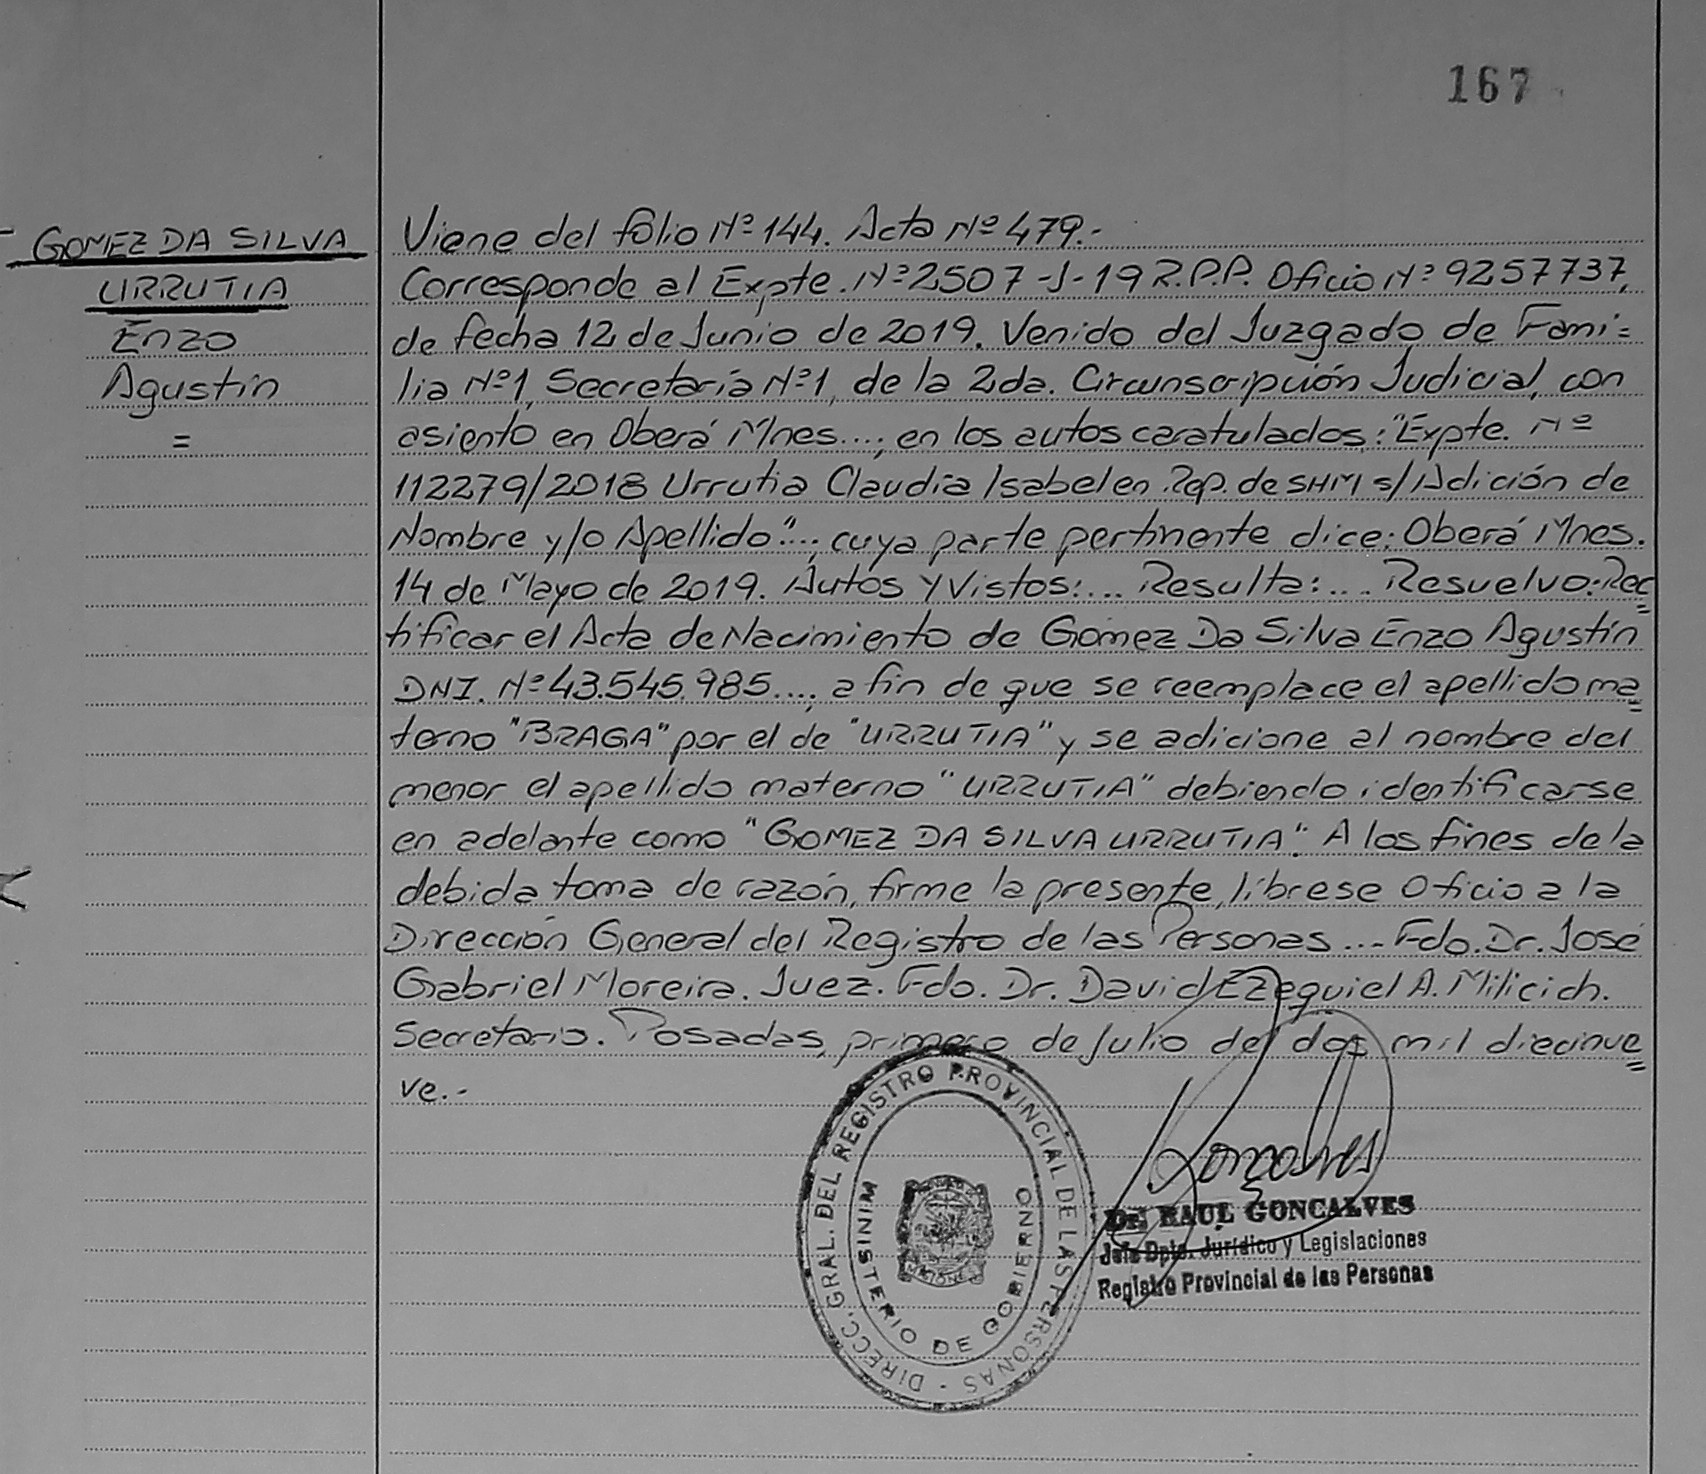 167
GOMEZ DA SILVA
URRUTIA
Enzo
Agustín
=
Viene del folio Nº 144. Acta Nº 479.-
Corresponde al Expte. Nº 2507-J-19 R.P.P. Oficio Nº 9257737,
de fecha 12 de Junio de 2019. Venido del Juzgado de Fami=
lia Nº1, Secretaría Nº1, de la 2da. Circunscripción Judicial, con
asiento en Oberá Mnes....; en los autos caratulados: "Expte. Nº
112279/2018 Urrutia Claudia Isabel en Rep. de SHM s/Adición de
Nombre y/o Apellido"...; cuya parte pertinente dice: Oberá Mnes.
14 de Mayo de 2019. Autos y Vistos:... Resulta:... Resuelvo: Rec=
tificar el Acta de Nacimiento de Gómez Da Silva Enzo Agustín
DNI. Nº 43.545.985...., a fin de que se reemplace el apellido ma=
terno "BRAGA" por el de "URRUTIA" y se adicione al nombre del
menor el apellido materno "URRUTIA" debiendo identificarse
en adelante como "GOMEZ DA SILVA URRUTIA". A los fines de la
debida toma de razón, firme la presente, líbrese Oficio a la
Dirección General del Registro de las Personas... Fdo. Dr. José
Gabriel Moreira. Juez. Fdo. Dr. David Ezequiel A. Milicich.
Secretario. Posadas, primero de Julio del dos mil diecinue=
ve.-
DIRECC. GRAL. DEL REGISTRO PROVINCIAL DE LAS PERSONAS -
MINISTERIO DE GOBIERNO
Goncalves
Dr. RAUL GONCALVES
Jefe Dpto. Jurídico y Legislaciones
Registro Provincial de las Personas